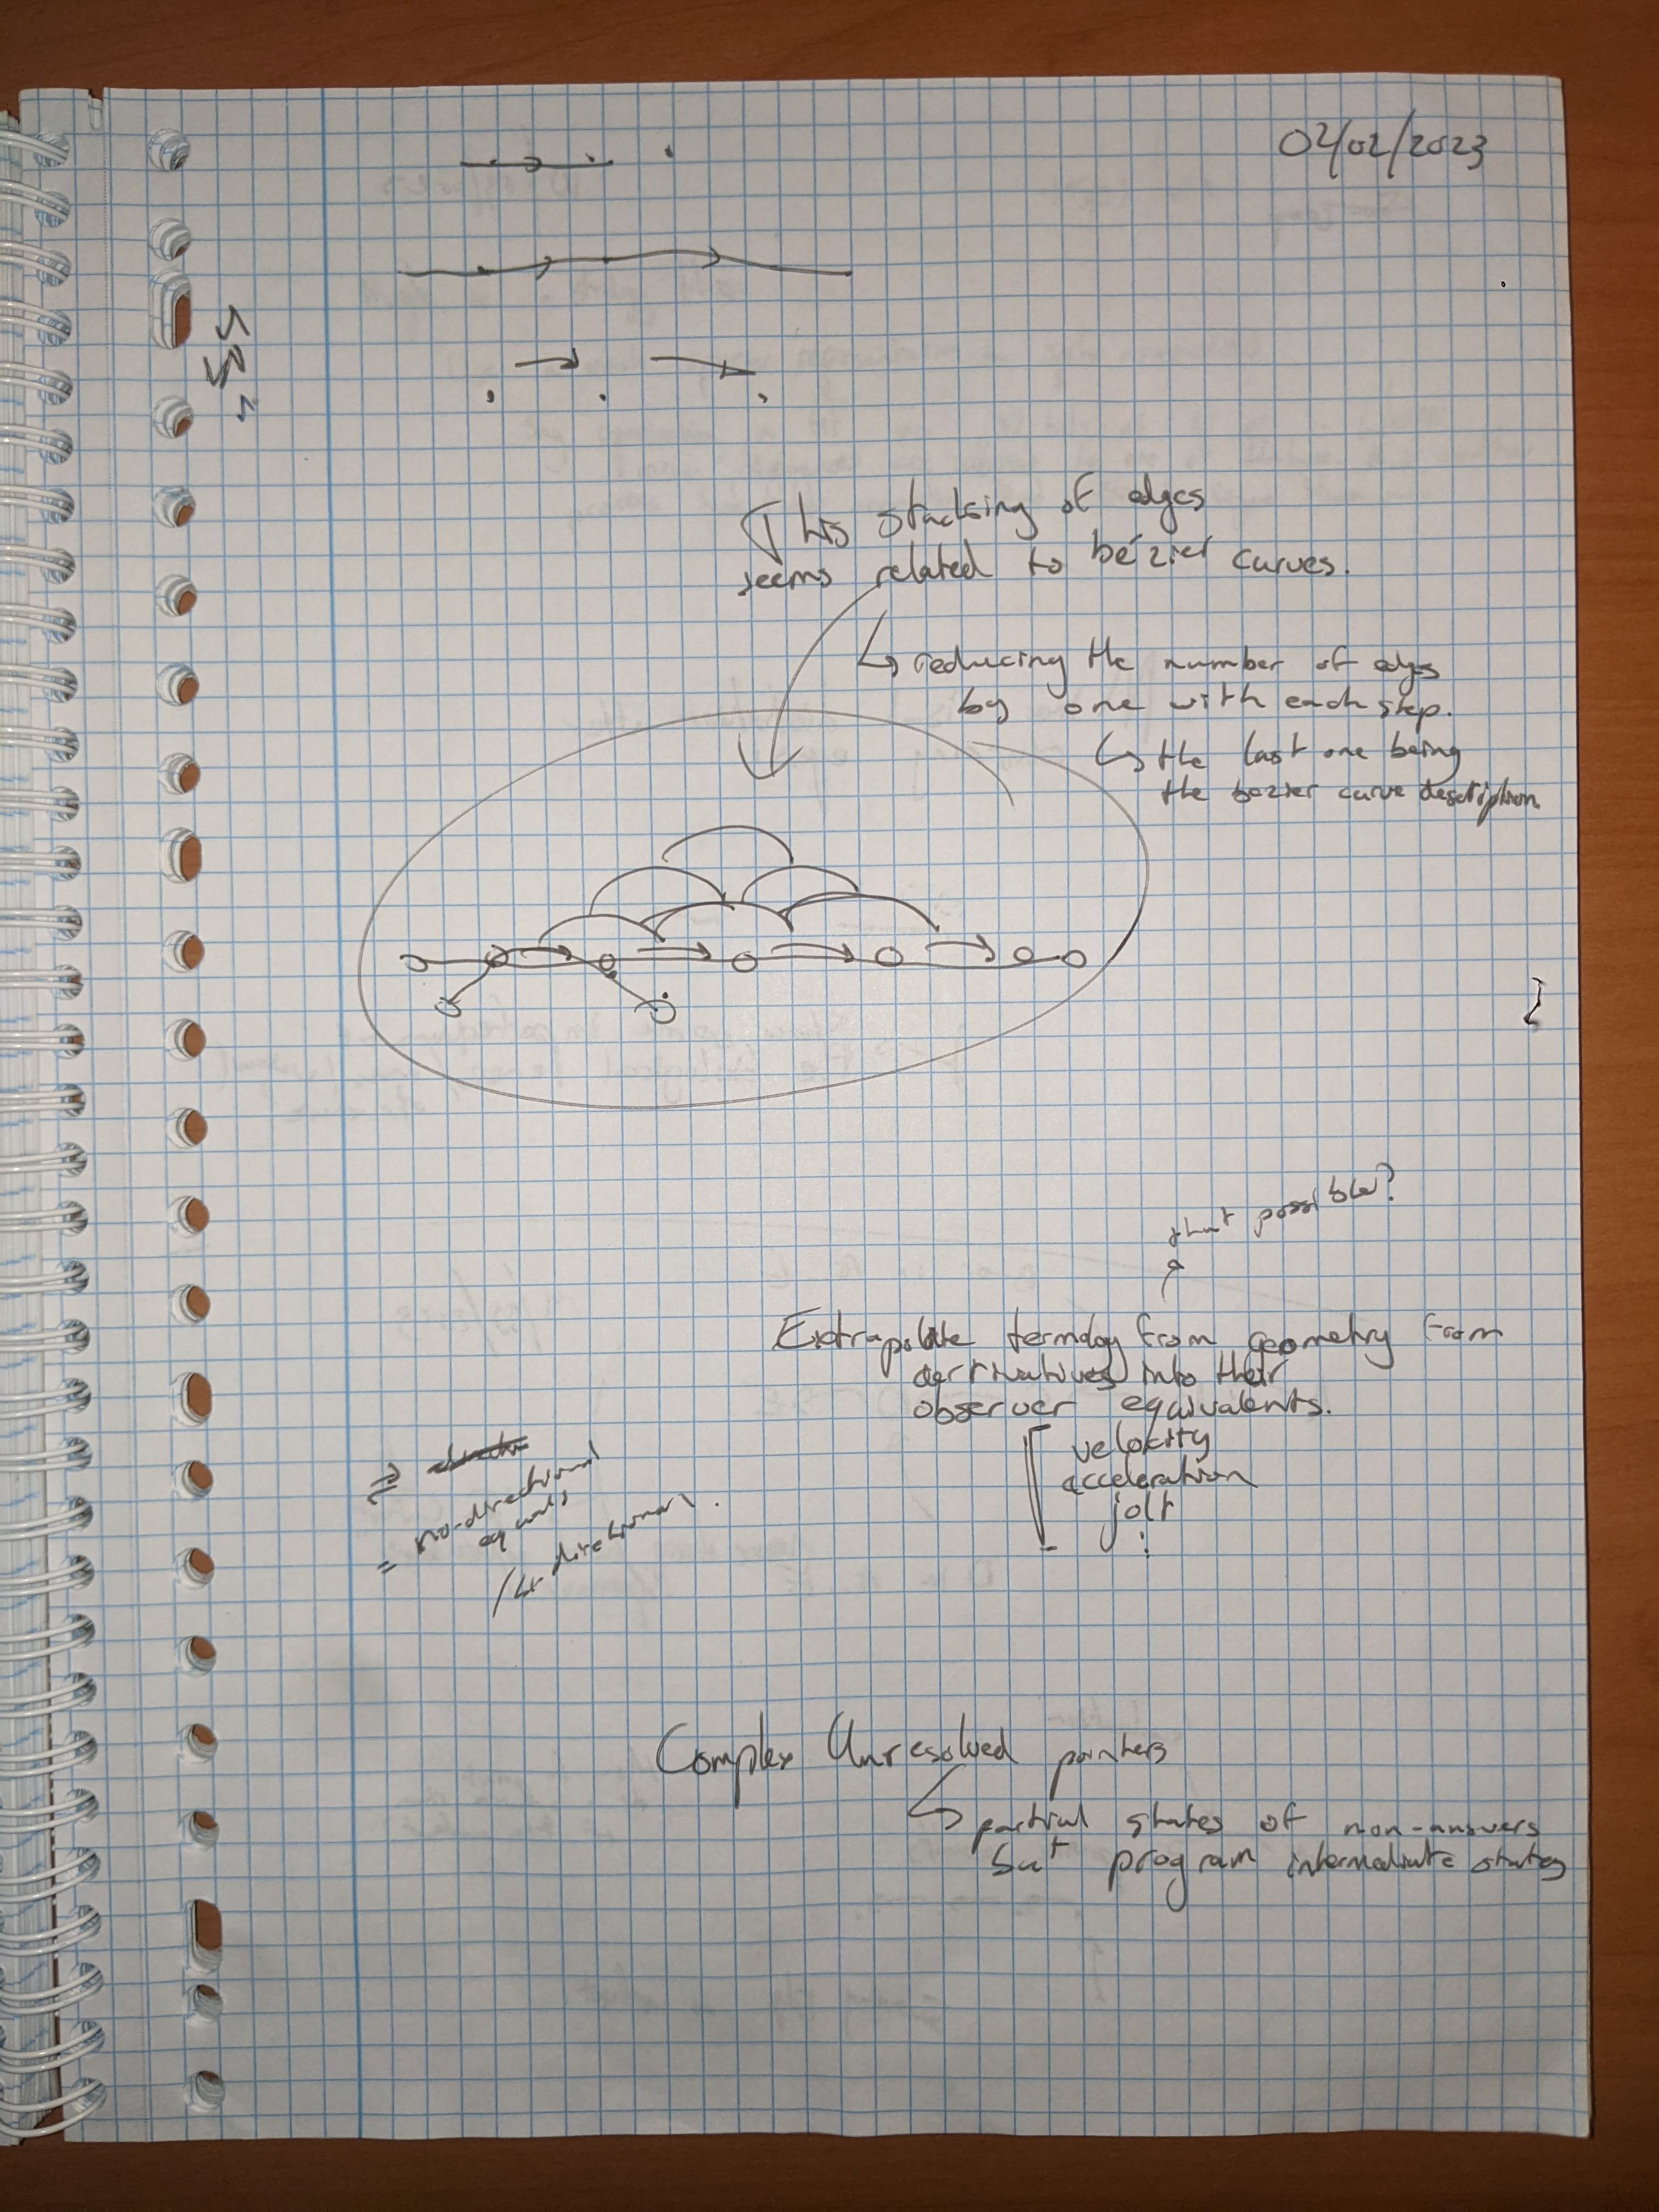 02/02/2023
This stacking of edges
seems related to bézier curves.
↳ reducing the number of edges
by one with each step.
↳ the last one being
the bezier curve description
possible?
Extrapolate from geometry from
derivatives into their
observer equivalents.
velocity
acceleration
jolt
⋮
⇌
= no-directional
equals
Complex Unresolved pointers
↳ partial states of non-answers
but program intermediate states